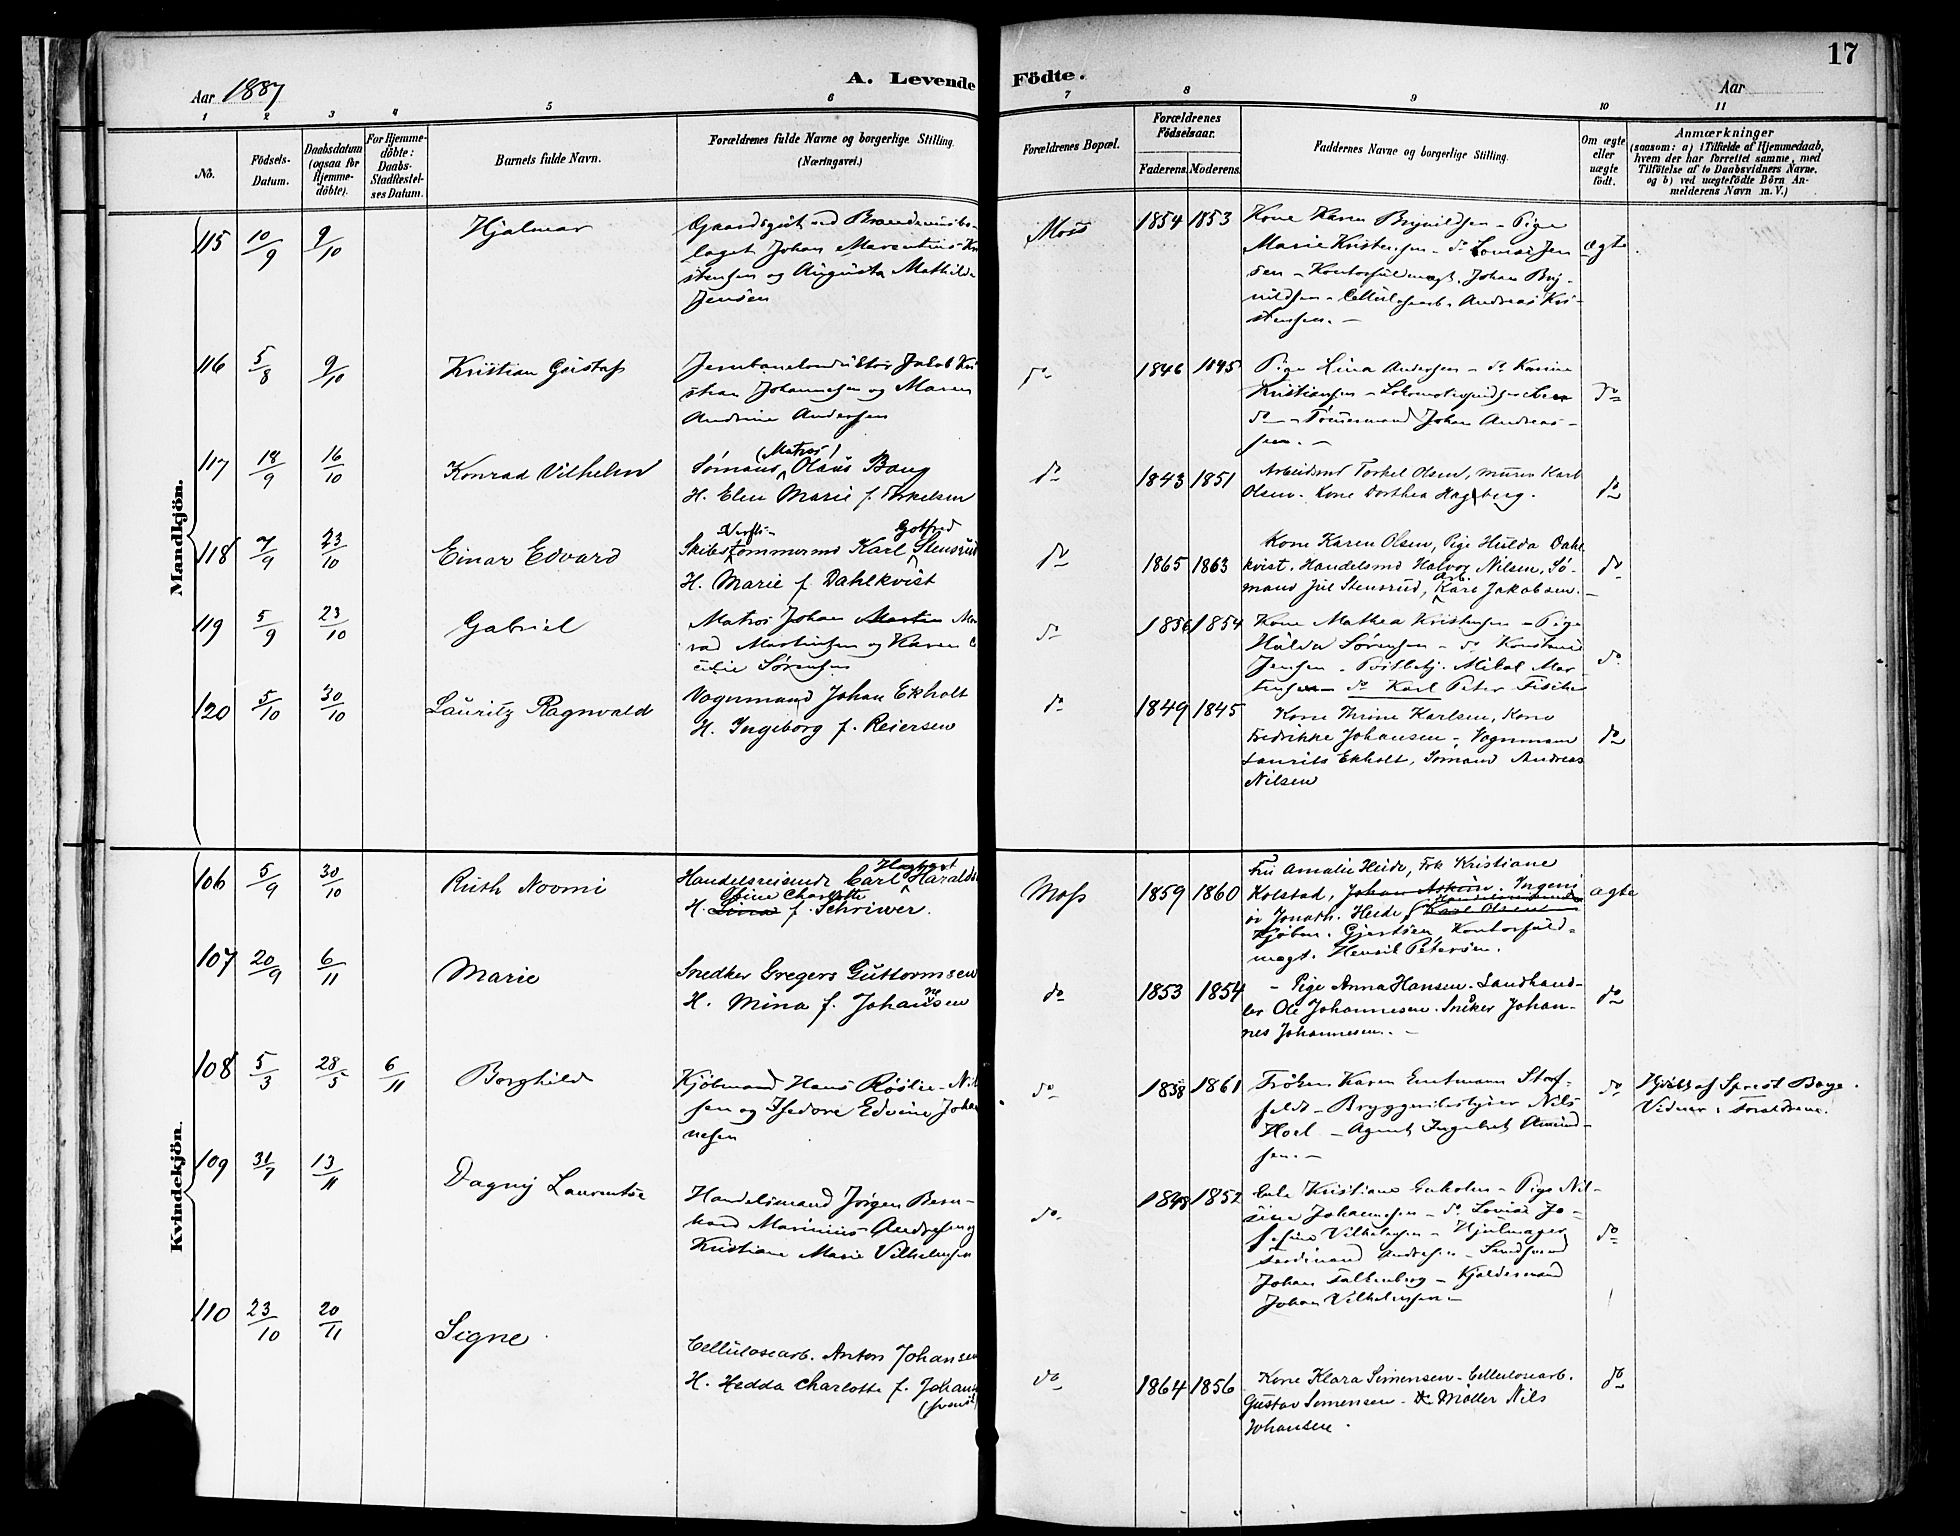 17
A. Levende Födte.
Aar 1887
Aar
1 2 3 4 5 6 7 8 9 10 11
No.
Födsels-
Datum.
Daabsdatum
(ogsaa for
Hjemme-
döbte).
For Hjemme-
döbte:
Daabs-
Stadfæstel-
ses Datum.
Barnets fulde Navn.
Forældrenes fulde Navne og borgerlige Stilling.
(Næringsvei.)
Forældrenes Bopæl.
Forældrenes
Födselsaar.
Faderens. Moderens.
Faddernes Navne og borgerlige Stilling.
Om ægte
eller
uægte
födt.
Anmærkninger
(saasom: a) i Tilfælde af Hjemmedaab,
hvem der har forrettet samme, med
Tilföielse af to Daabsvidners Navne.
og b) ved uægtefödte Börn An-
melderens Navn m. V.)
Mandkjön.
115 10/9 9/10 Hjalmar
Gaardsgut ved
laget Johan Marentius Kri
stensen og Augusta Mathilde
Jensen
Moss 1854 1853
Kone Karen Brynildsen - Pige
Marie Kristensen - do Lovise Jen
sen - Kontorfuldmægt. Johan Bry-
nildsen - Cellulosearb. Andreas Kri-
stensen. -
ægte
116 5/8 9/10 Kristian Gustaf
Jernbanekonduktör Jakob Kri
stian Johannesen og Maren
Andrine Andersen
do 1846 1845
Pige Lina Andersen - do Karine
Kristiansen -
do - Tömmermand Johan Andreas-
sen. -
do
117 18/9 16/10 Konrad Vilhelm
(Matros)
Sömand Olaus Bang
H. Elen Marie f. Torkelsen
do 1843 1851
Arbeidsmd Torkel Olsen, murer Karl
Olsen. Kone Dorthea Hagberg.
do
118 7/9 23/10 Einar Edvard
Verfts- Gotfred
Skibstömmermd Karl Stensrud
H. Marie f. Dahlkvist
do 1865 1863
Kone Karen Olsen, Pige Hulda Dahl
kvist. Handelsmd Halvor Nilsen, Sö-
mand Jul Stensrud, Arb. Karl Jakobsen. -
do
119 5/9 23/10 Gabriel
Matros Johan Martin
rad Martinsen og Karen C
cilie Sörensen
do 1856 1854
Kone Mathea Kristensen - Pige
Hulda Sörensen - do Konstanse
Jensen - Mikal Mar-
tinsen - do Karl Peter Fischer
do
120 5/10 30/10 Lauritz Ragnvald
Vognmand Johan Ekholt
H. Ingeborg f. Reiersen
do 1849 1845
Kone Thrine Karlsen, Kone
Fredrikke Johansen -, Vognmann
Laurits Ekholt, Sömand Andreas
Nilsen
do
Kvindekjön.
106 5/9 30/10 Ruth Noomi
Hagbart
Handelsreisende Carl Haralds
Gsine Charlotte
H. Lina f. Schriwer.
Moss 1859 1860
Fru Amalie Heide, Frk Kristiane
Kolstad, Johan Askim. Ingeni
ör Jonath. Heide, Handelsreisende Karl Olsen
Kjöbm. Gjertsen, Kontorfuld-
mægt. Henrik Petersen.
ægte
107 20/9 6/11 Marie
Snedker Gregers Guttormsen
H. Mina f. Johannsen
do 1853 1854
- Pige Anna Hansen. Landhand-
ler Ole Johannesen. Sneker Johan-
nes Johannesen. -
do
108 5/3 28/5 6/11 Borghild
Kjöbmand Hans Röslie-Nil
sen og Isedore Edvine Johan
nesen
do 1858 1861
Fröken Karen Entmann Stor-
feldt - Bryggeribestyrer Nils
Hoel - Agent Ingebret Amund-
sen. -
do
Hjdöbt af Sprest Boye.
Vidner: Forældrene.
109 31/7 13/11 Dagny Laurentse
Handelsmand Jörgen Bern-
hard Marinius Andresen og
Kristiane Marie Vilhelmsen
do 1848 1852
Enke Kristiane Enholm - Pige Nil-
sine Johannesen - do Lovise Jo-
sefine Vilhelmsen - Hjulmager
Ferdinand Andresen -
Johan Falkenberg - Kjeldermand
Johan Vilhelmsen -
do
110 23/10 20/11 Signe
Cellulosearb. Anton Johansen
H. Hedda Charlotte f. Johans
(svensk)
do 1864 1856
Kone Klara Simensen - Cellulosearb.
Gustav Simensen - Möller Nils
Johansen.
do